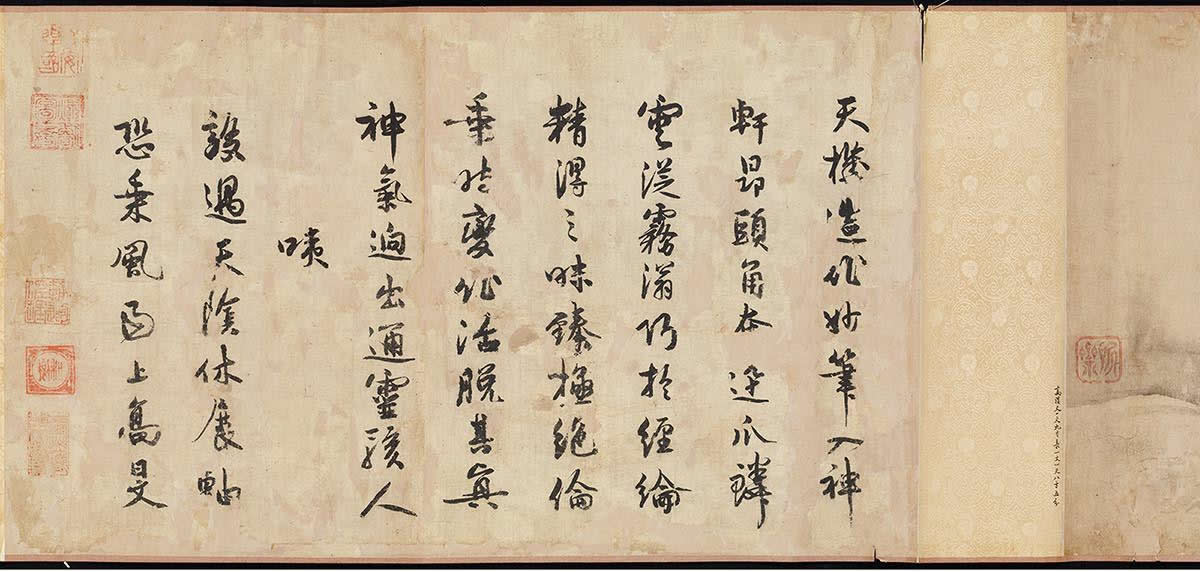 天機造化妙筆入神
軒昂頭角 爪鱗
雲從霧滃巧於經綸
精得之味臻極絕倫
乘時變化活脫其真
神氣迥出通靈駭人
咦
設遇天陰休展軸
恐乘風雨上高旻